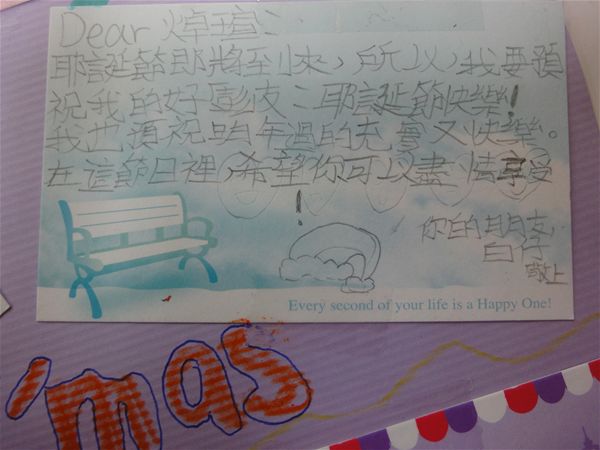 Dear 焯瑄：
耶誕節即將到來，所以，我要預
祝我的好彭皮：耶誕節快樂！
我也預祝明年過的充實又快樂。
在這節日裡，希望你可以盡情享受
！
你的朋友
白仔
敬上
Every second of your life is a Happy One!
'mas